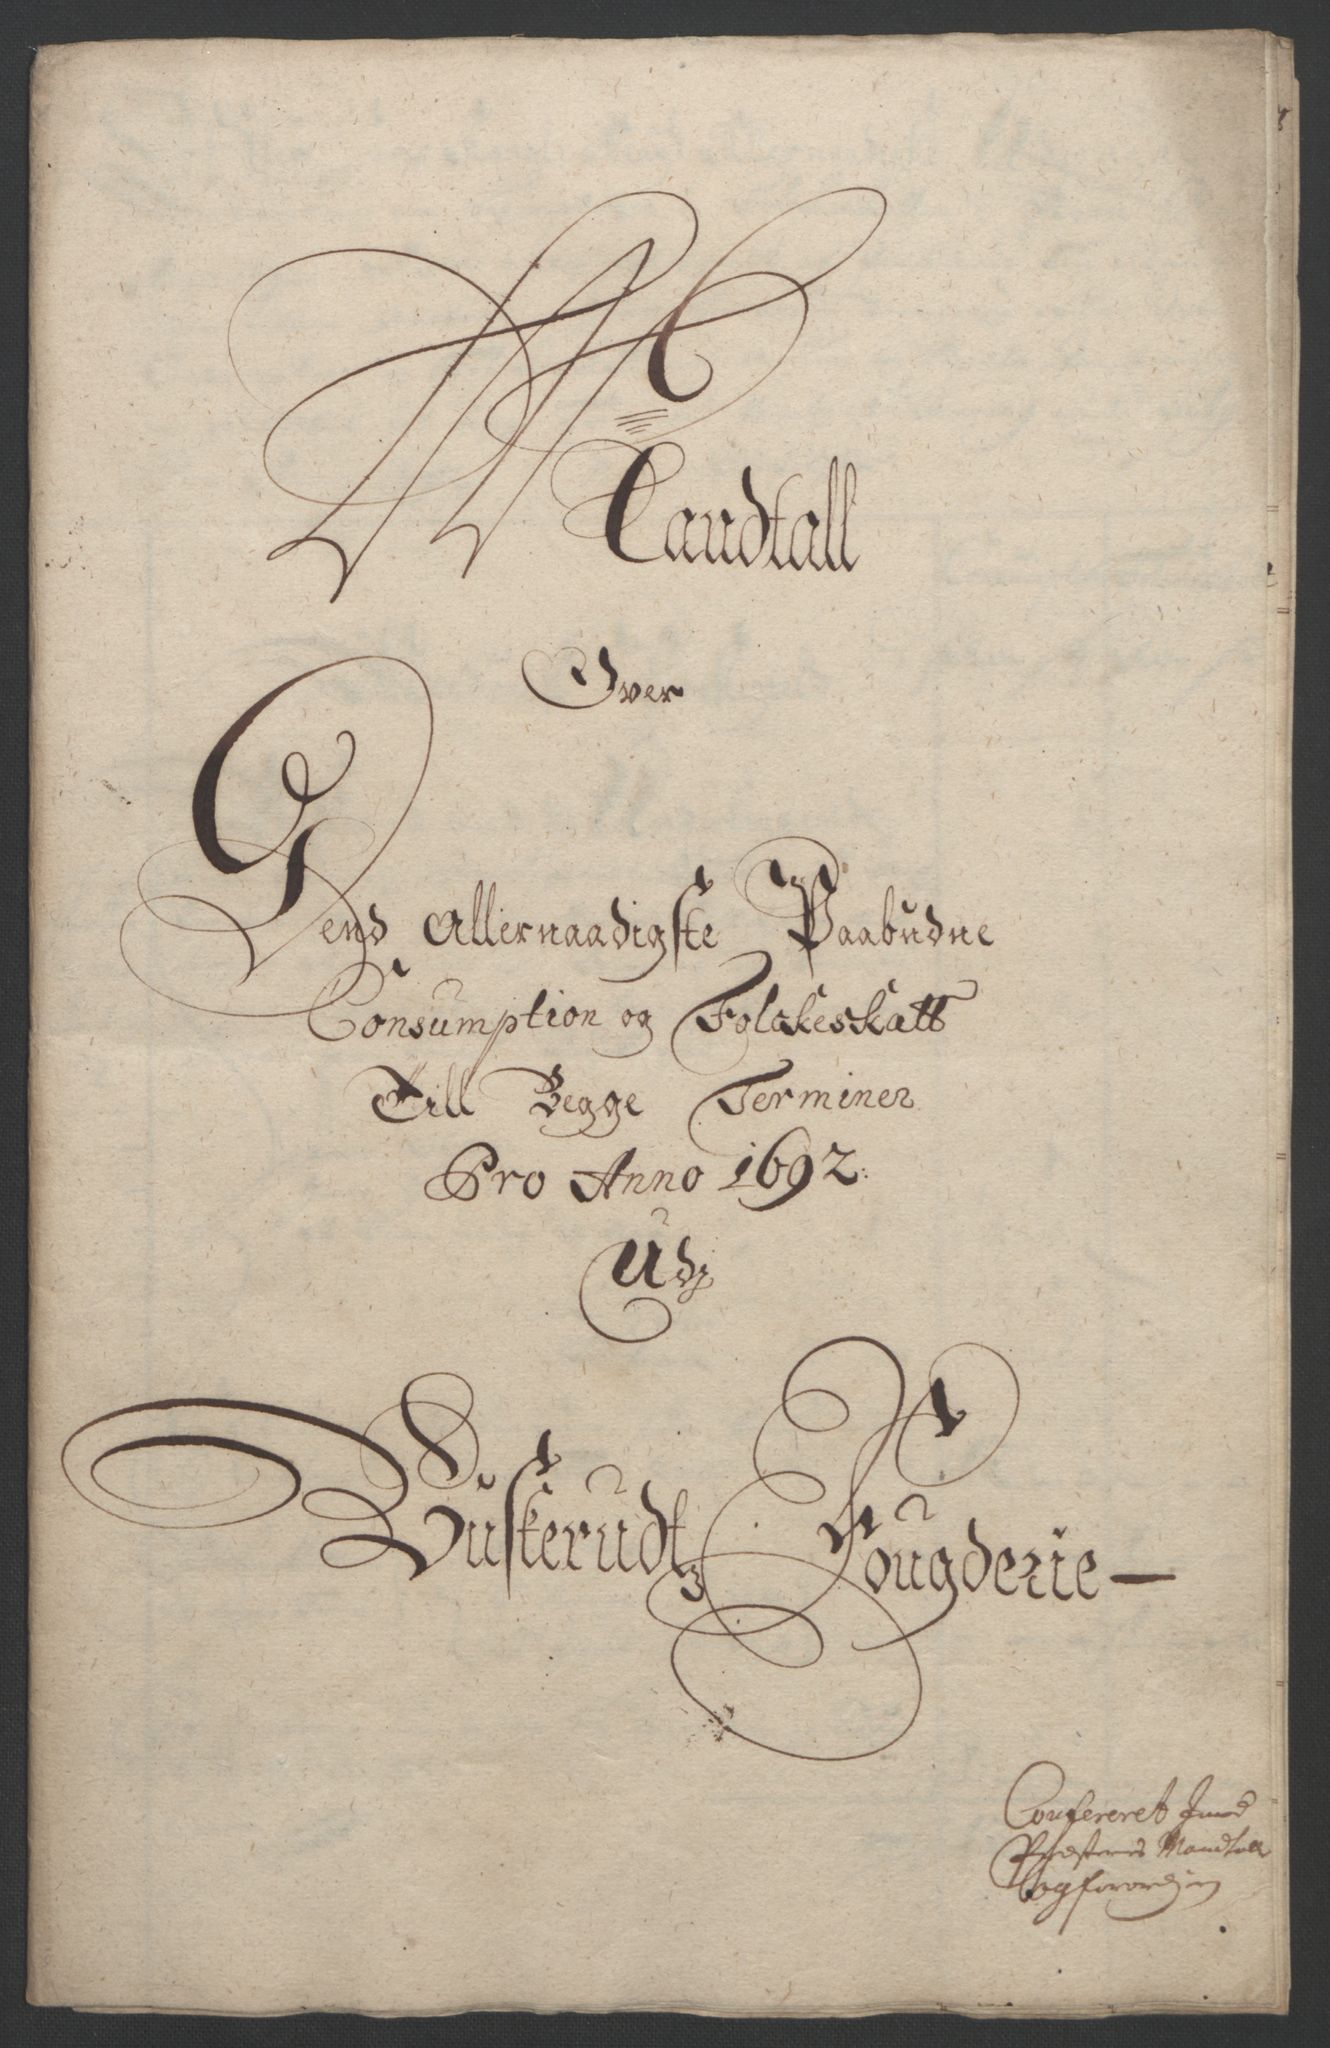 Mandtall
Over
Dend Allernaadigste Paabudne
Consumption og Folckeskatt
Till Begge Terminer
Pro Anno 1692.
Udj
Buskerudtz Fougderie
Confereret imod
Præsternis Mandtall
og forord:en